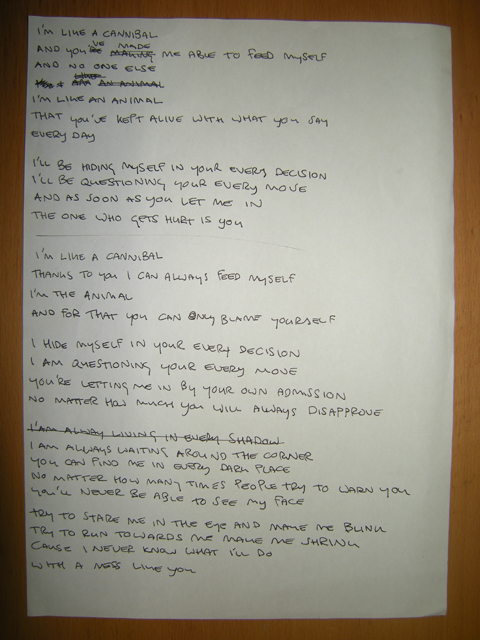 I'M LIKE A CANNIBAL
AND YOU'VE MADE ME ABLE TO FEED MYSELF
AND NO ONE ELSE
I'M LIKE AN ANIMAL
THAT YOU'VE KEPT ALIVE WITH WHAT YOU SAY
EVERY DAY
I'LL BE HIDING MYSELF IN YOUR EVERY DECISION
I'LL BE QUESTIONING YOUR EVERY MOVE
AND AS SOON AS YOU LET ME IN
THE ONE WHO GETS HURT IS YOU
I'M LIKE A CANNIBAL
THANKS TO YOU I CAN ALWAYS FEED MYSELF
I'M THE ANIMAL
AND FOR THAT YOU CAN ONLY BLAME YOURSELF
I HIDE MYSELF IN YOUR EVERY DECISION
I AM QUESTIONING YOUR EVERY MOVE
YOU'RE LETTING ME IN BY YOUR OWN ADMISSION
NO MATTER HOW MUCH YOU WILL ALWAYS DISAPPROVE
I'AM ALWAY LIVING IN EVERY SHADOW
I AM ALWAYS WAITING AROUND THE CORNER
YOU CAN FIND ME IN EVERY DARK PLACE
NO MATTER HOW MANY TIMES PEOPLE TRY TO WARN YOU
YOU'LL NEVER BE ABLE TO SEE MY FACE
TRY TO STARE ME IN THE EYE AND MAKE ME BLINK
TRY TO RUN TOWARDS ME MAKE ME SHRINK
CAUSE I NEVER KNOW WHAT I'LL DO
WITH A MESS LIKE YOU